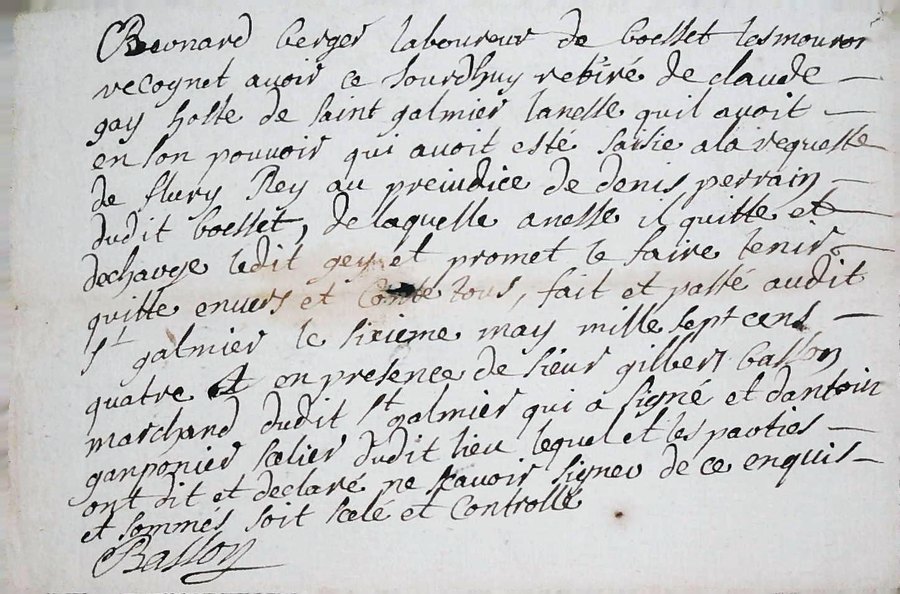 Benoiard berger laboureur de boesset lesmouron
recognet avoir ce jourdhuy retiré de claude
gay hoste de saint galmier lanesse quil avoit
en son pouvoir qui avoit esté saisie ala requeste
de flury Rey au preiudice de denis perrain
dudit boesset, de laquelle anesse il quitte et
decharge ledit gey et promet le faire tenir
quitte envers et contre tous, fait et passé audit
st galmier le sixieme may mille sept cens
quatre et en presence de sieur gilbert basson
marchand dudit st galmier qui a signé et dantoin
ganponier selier dudit lieu lequel et les parties
ont dit et declaré ne scavoir signer de ce enquis
et sommés soit scelé et Controllé
Basson